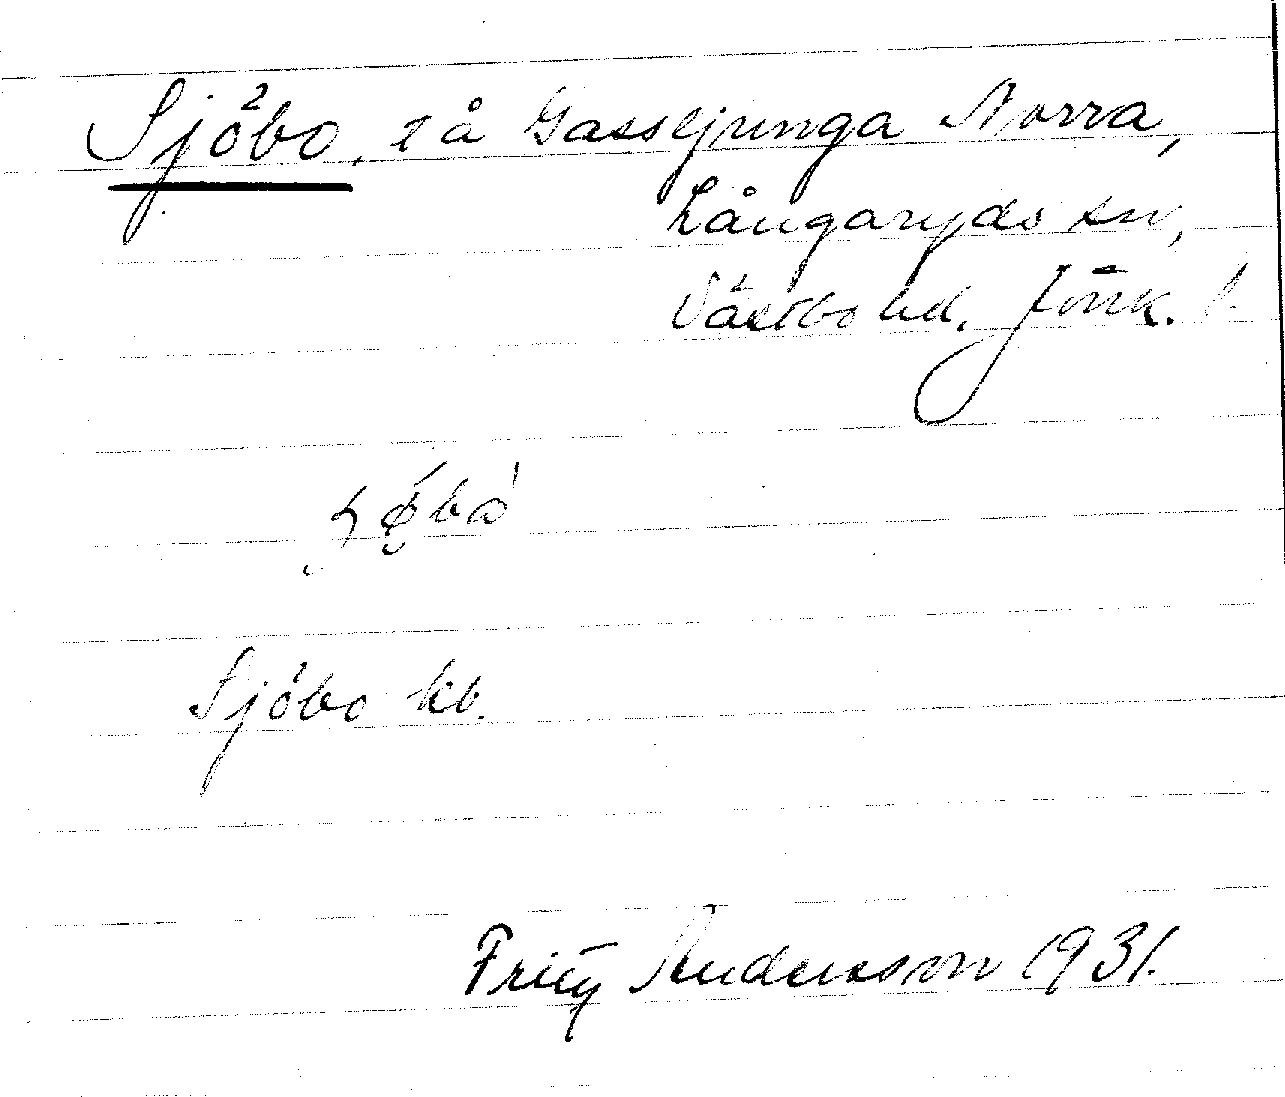 Sjöbo, t å Gassljunga Norra,
Långaryds sn,
Västbo hd. Jönk. l.
Sjöbo kb.
Fritz Andersson 1931.